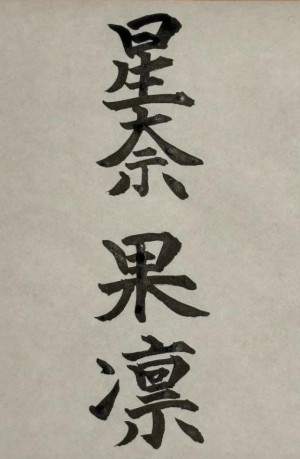 星奈
果凛